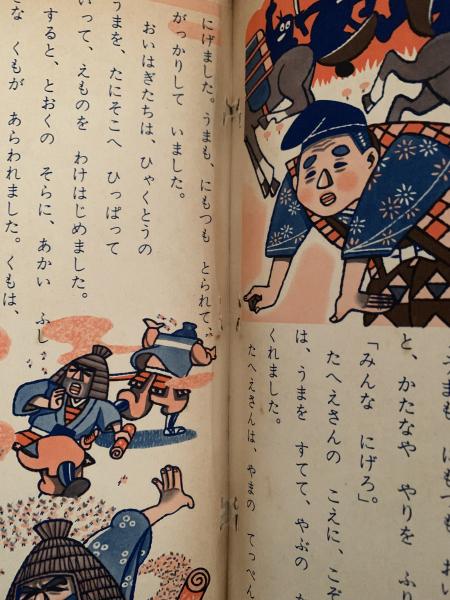 うまも、にもつも、おい
と、かたなや やりを ふり
「みんな にげろ」
たへえさんの こえに、こぞ
は、うまを すてて、やぶの な
くれました。
たへえさんは、やまの てっぺん
にげました。うまも、にもつも とられて、
がっかりして いました。
おいはぎたちは、ひゃくとうの
うまを、たにそこへ ひっぱって
いって、えものを わけはじめました。
すると、とおくの そらに、あかい ふし
な くもが あらわれました。くもは、